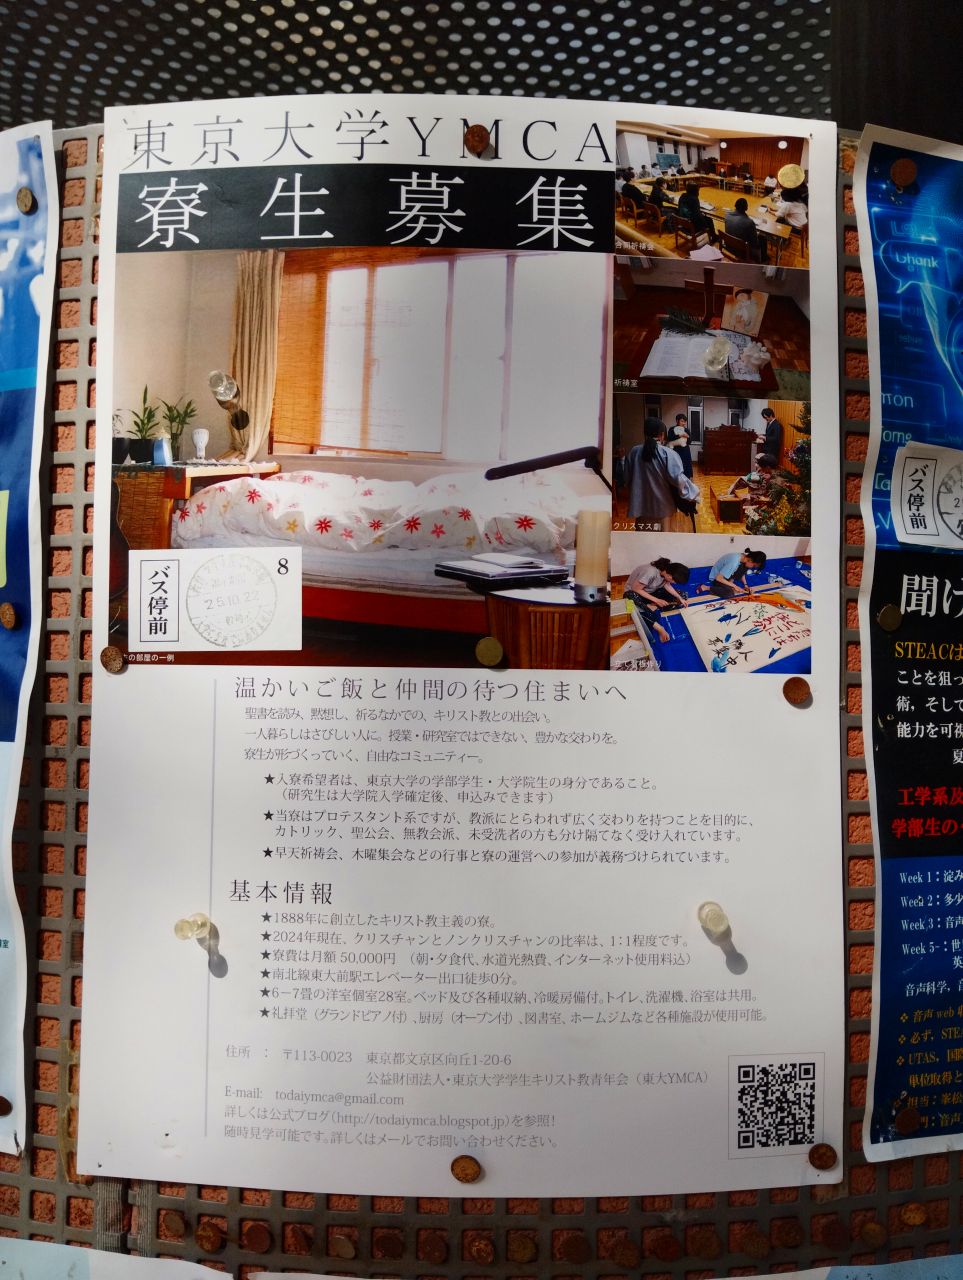 東京大学YMCA
寮生募集
合同祈祷会
祈祷室
クリスマス劇
立て看板作り
バス停前
8
25.10.22
の部屋の一例
温かいご飯と仲間の待つ住まいへ
聖書を読み、黙想し、祈るなかでの、キリスト教との出会い。
一人暮らしはさびしい人に。授業・研究室ではできない、豊かな交わりを。
寮生が形づくっていく、自由なコミュニティー。
★入寮希望者は、東京大学の学部学生・大学院生の身分であること。
（研究生は大学院入学確定後、申込みできます）
★当寮はプロテスタント系ですが、教派にとらわれず広く交わりを持つことを目的に、
カトリック、聖公会、無教会派、未受洗者の方も分け隔てなく受け入れています。
★早天祈祷会、木曜集会などの行事と寮の運営への参加が義務づけられています。
基本情報
★1888年に創立したキリスト教主義の寮。
★2024年現在、クリスチャンとノンクリスチャンの比率は、1：1程度です。
★寮費は月額 50,000円 （朝・夕食代、水道光熱費、インターネット使用料込）
★南北線東大前駅エレベーター出口徒歩0分。
★6－7畳の洋室個室28室。ベッド及び各種収納、冷暖房備付。トイレ、洗濯機、浴室は共用。
★礼拝堂（グランドピアノ付）、厨房（オーブン付）、図書室、ホームジムなど各種施設が使用可能。
住所 ： 〒113-0023 東京都文京区向丘1-20-6
公益財団法人・東京大学学生キリスト教青年会（東大YMCA）
E-mail: todaiymca@gmail.com
詳しくは公式ブログ(http://todaiymca.blogspot.jp)を参照！
随時見学可能です。詳しくはメールでお問い合わせください。
バス停前
聞け
STEACは
ことを狙っ
術、そして
能力を可視
夏
工学系及
学部生の
Week 1：淀み
Week 2：多少
Week 3：音声
Week 5-：世
英
音声科学，音
音声 web
必ず，STE
UTAS，国際
単位取得と
担当：峯松